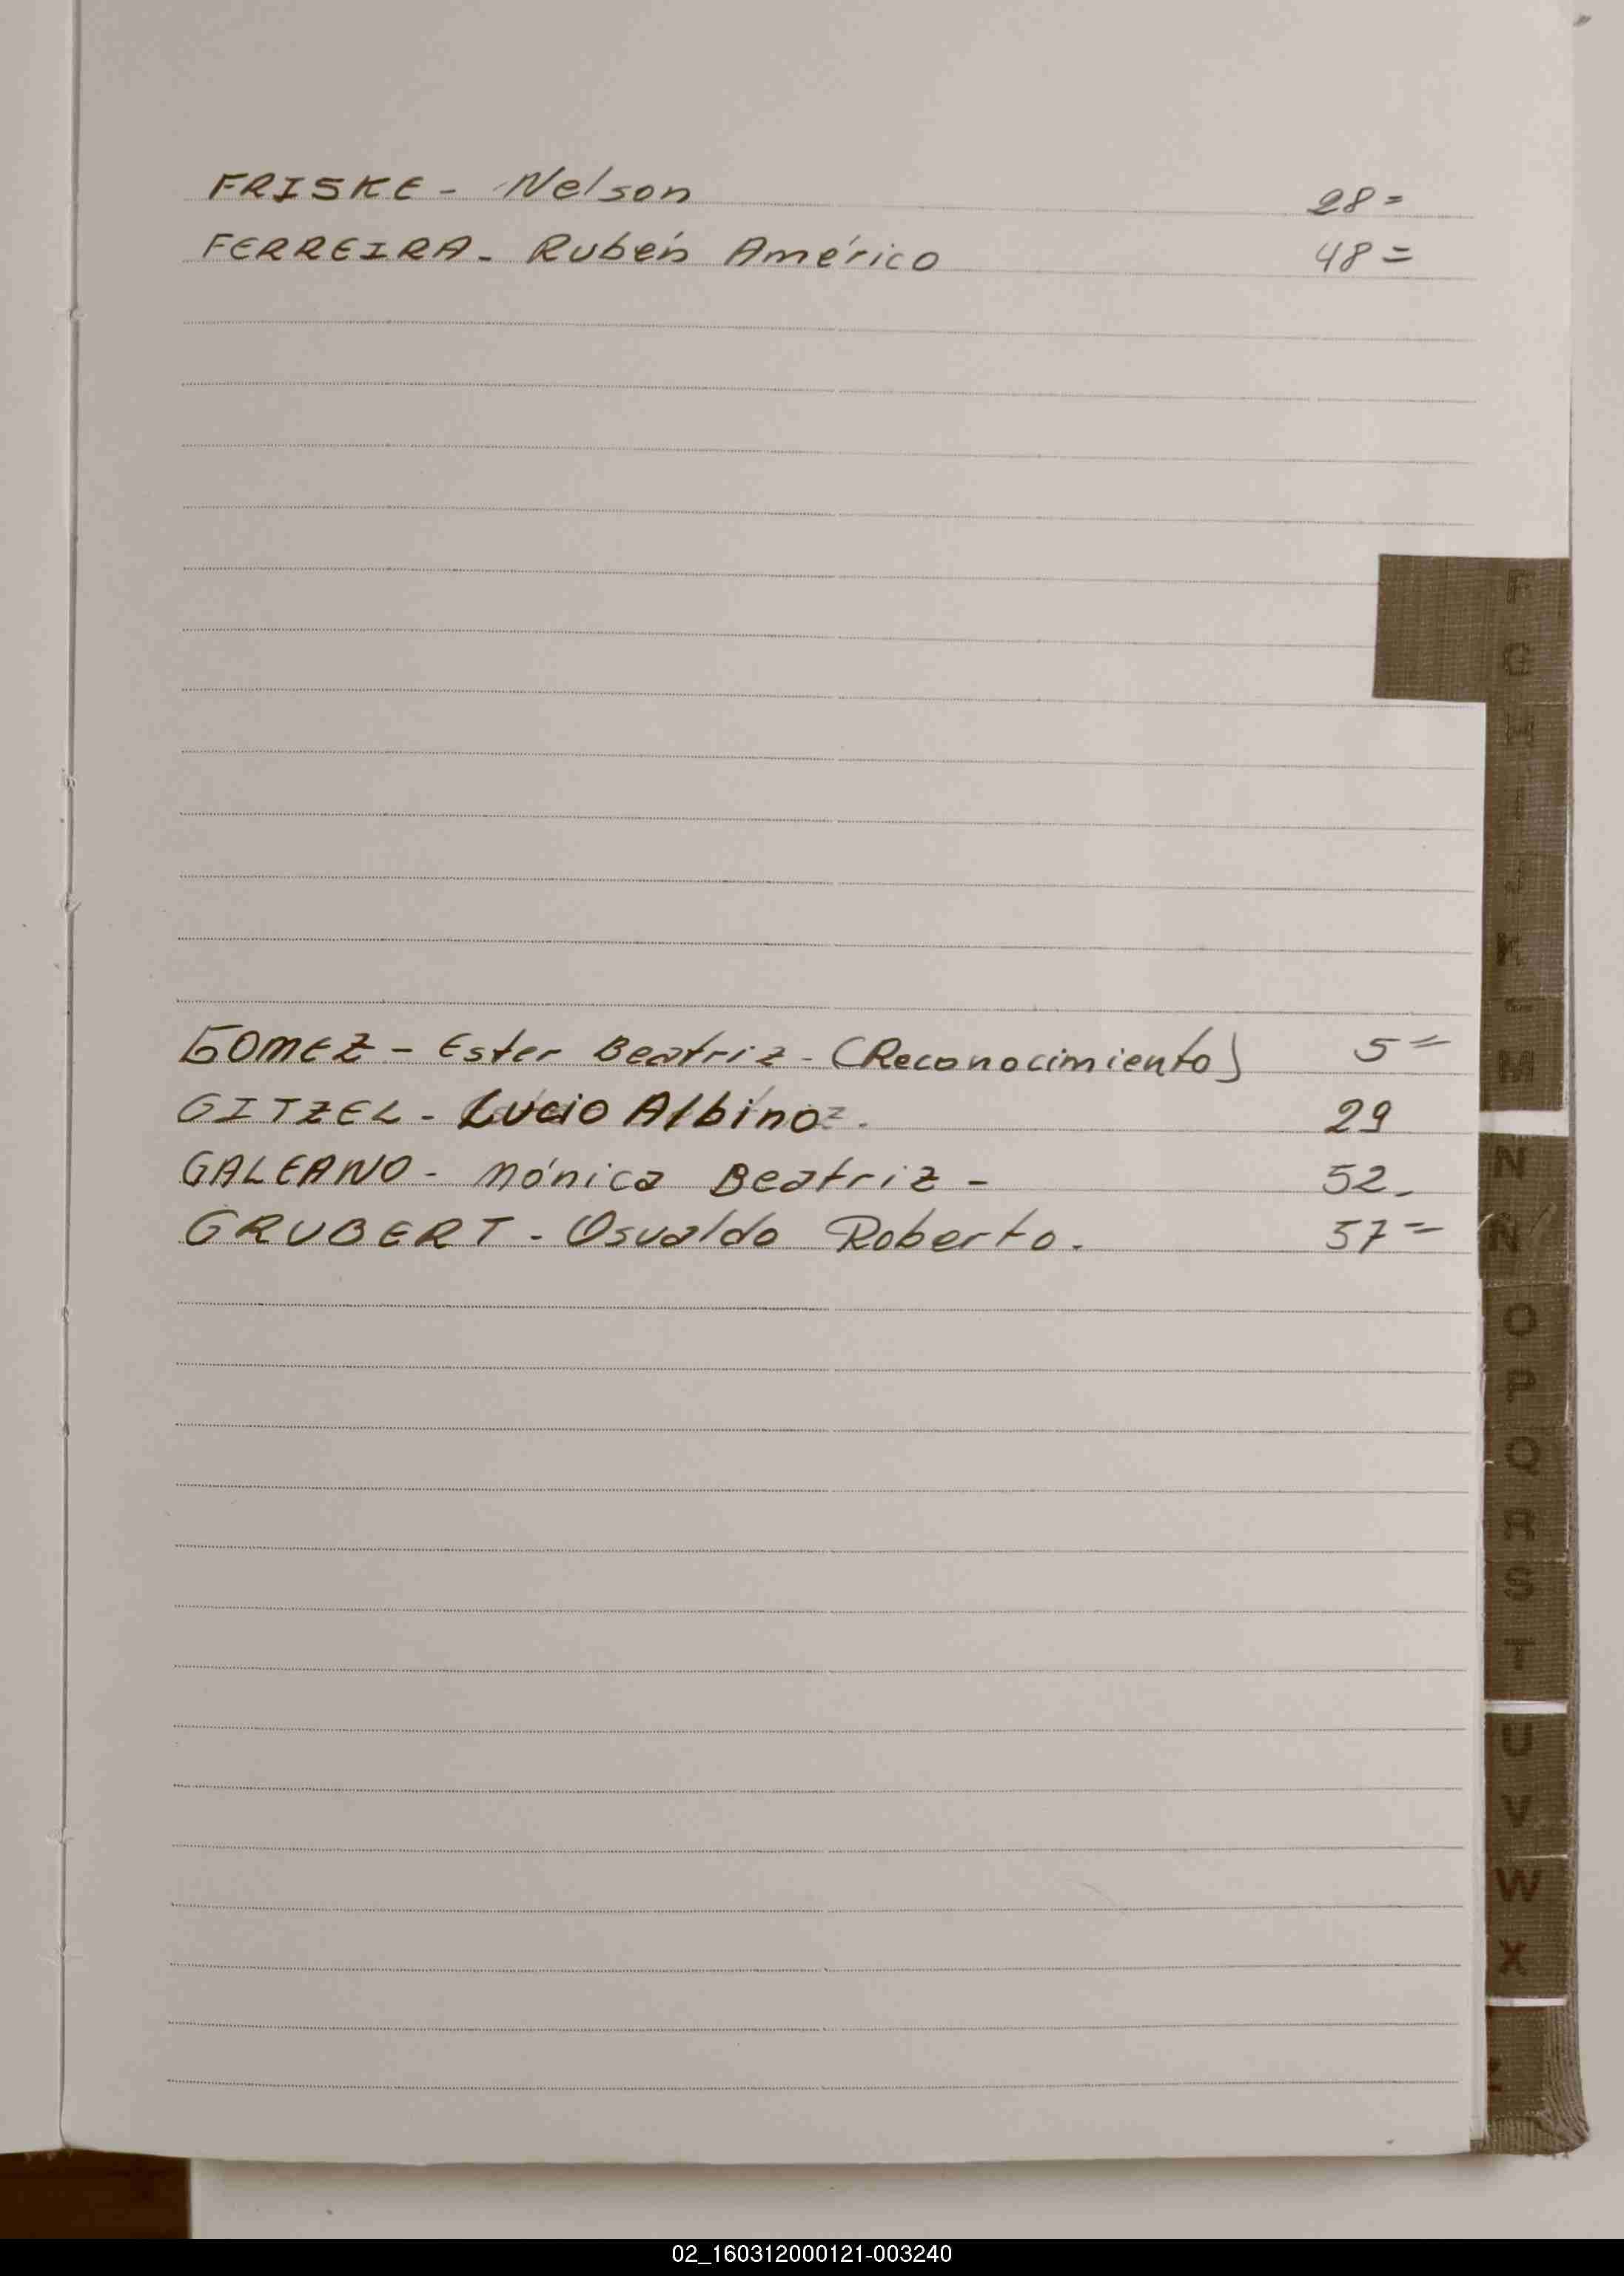 FRISKE - Nelson 28 =
FERREIRA - Rubén Américo 48 =
GOMEZ - Ester Beatriz - (Reconocimiento) 5 =
GITZEL - Lucio Albino. 29
GALEANO - Mónica Beatriz - 52 -
GRUBERT - Osvaldo Roberto. 57 =
F
G
H
I
J
K
L
M
N
Ñ
O
P
Q
R
S
T
U
V
W
X
02_160312000121-003240